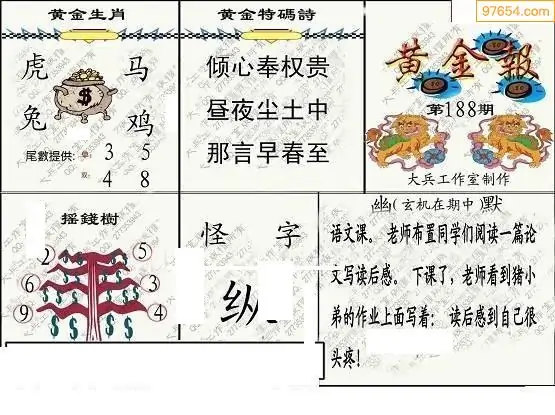 97654.com
黄金生肖
虎 马
兔 鸡
尾數提供: 單: 3 5
双: 4 8
黄金特碼詩
倾心奉权贵
昼夜尘土中
那言早春至
黄金報
第188期
大兵工作室制作
摇錢樹
2 5
6 3
9 4
怪 字
纵
幽(玄机在期中)默
语文课。老师布置同学们阅读一篇论
文写读后感。下课了，老师看到猪小
弟的作业上面写着：读后感到自己很
头疼！